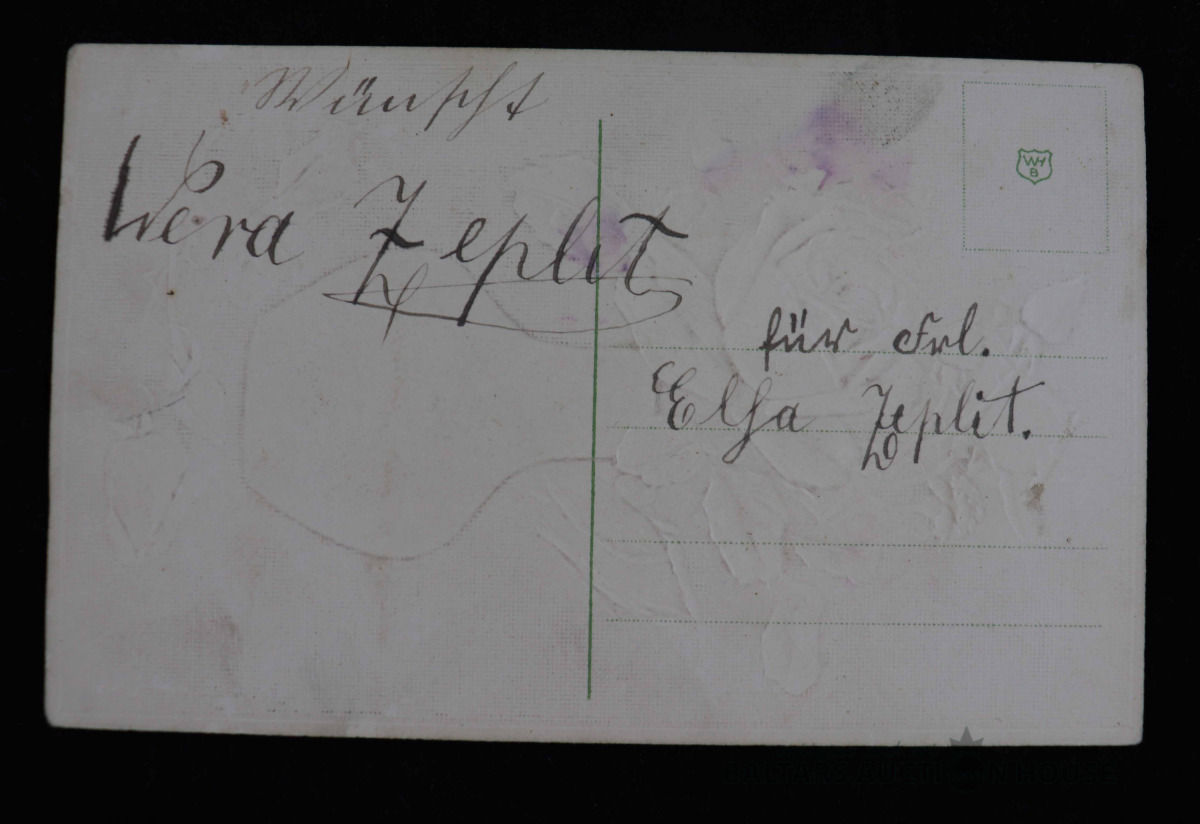 Wünscht
Wera Zeplit
für Frl.
Elsa Zeplit.
WH
B
BALTARS AUCTION HOUSE